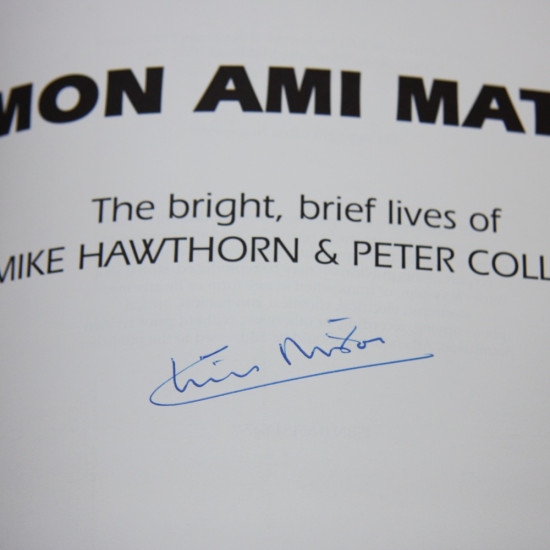 MON AMI MAT
The bright, brief lives of
MIKE HAWTHORN & PETER COLL
Chris Nixon